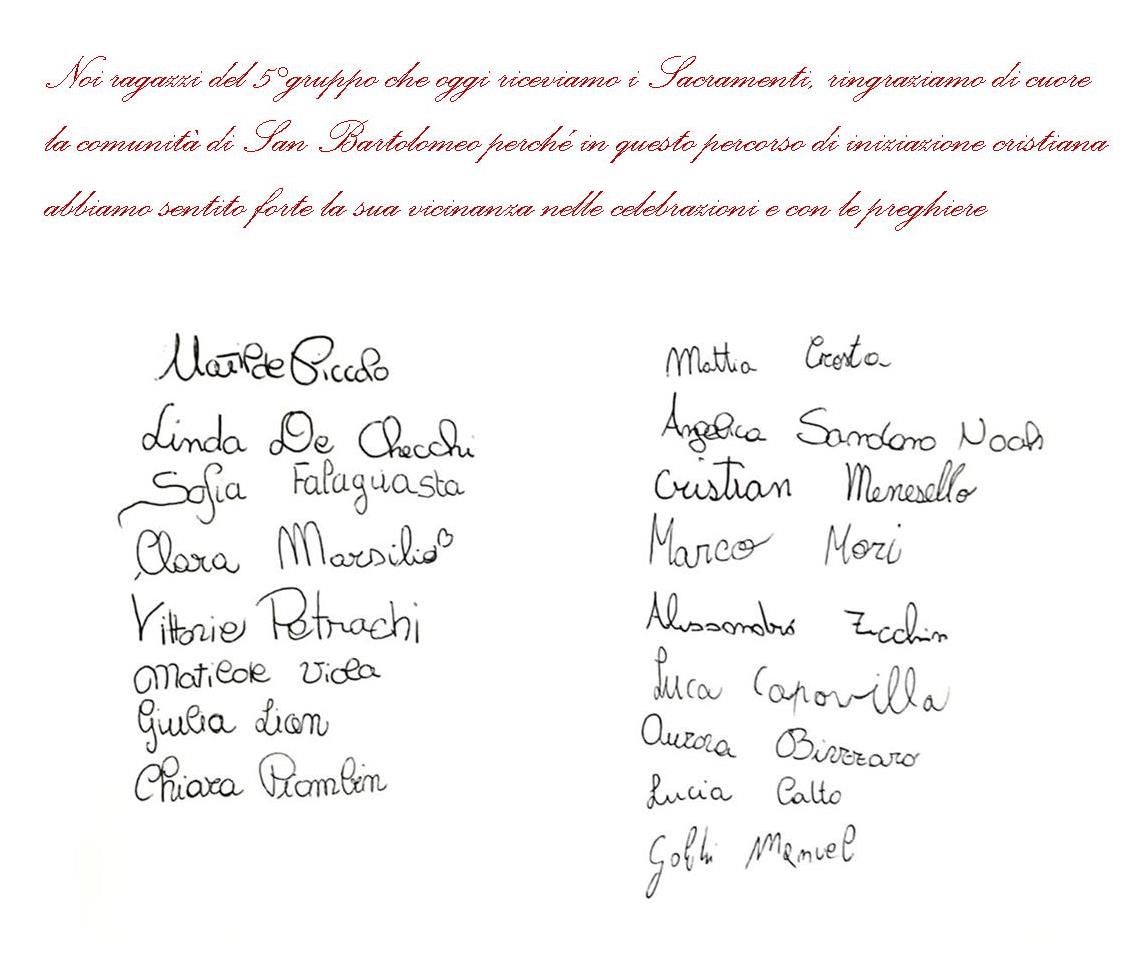 Noi ragazzi del 5°gruppo che oggi riceviamo i Sacramenti, ringraziamo di cuore
la comunità di San Bartolomeo perché in questo percorso di iniziazione cristiana
abbiamo sentito forte la sua vicinanza nelle celebrazioni e con le preghiere
Matilde Piccolo
Linda De Checchi
Sofia Falaguasta
Clara Marsilio
Vittoria Petrachi
Matilde Viola
Giulia Lion
Chiara Piombin
Mattia Crosta
Angelica Noah
Cristian Menesello
Marco Mori
Alessandro Zecchin
Luca Capovilla
Aurora Bizzaro
Lucia Calto
Manuel